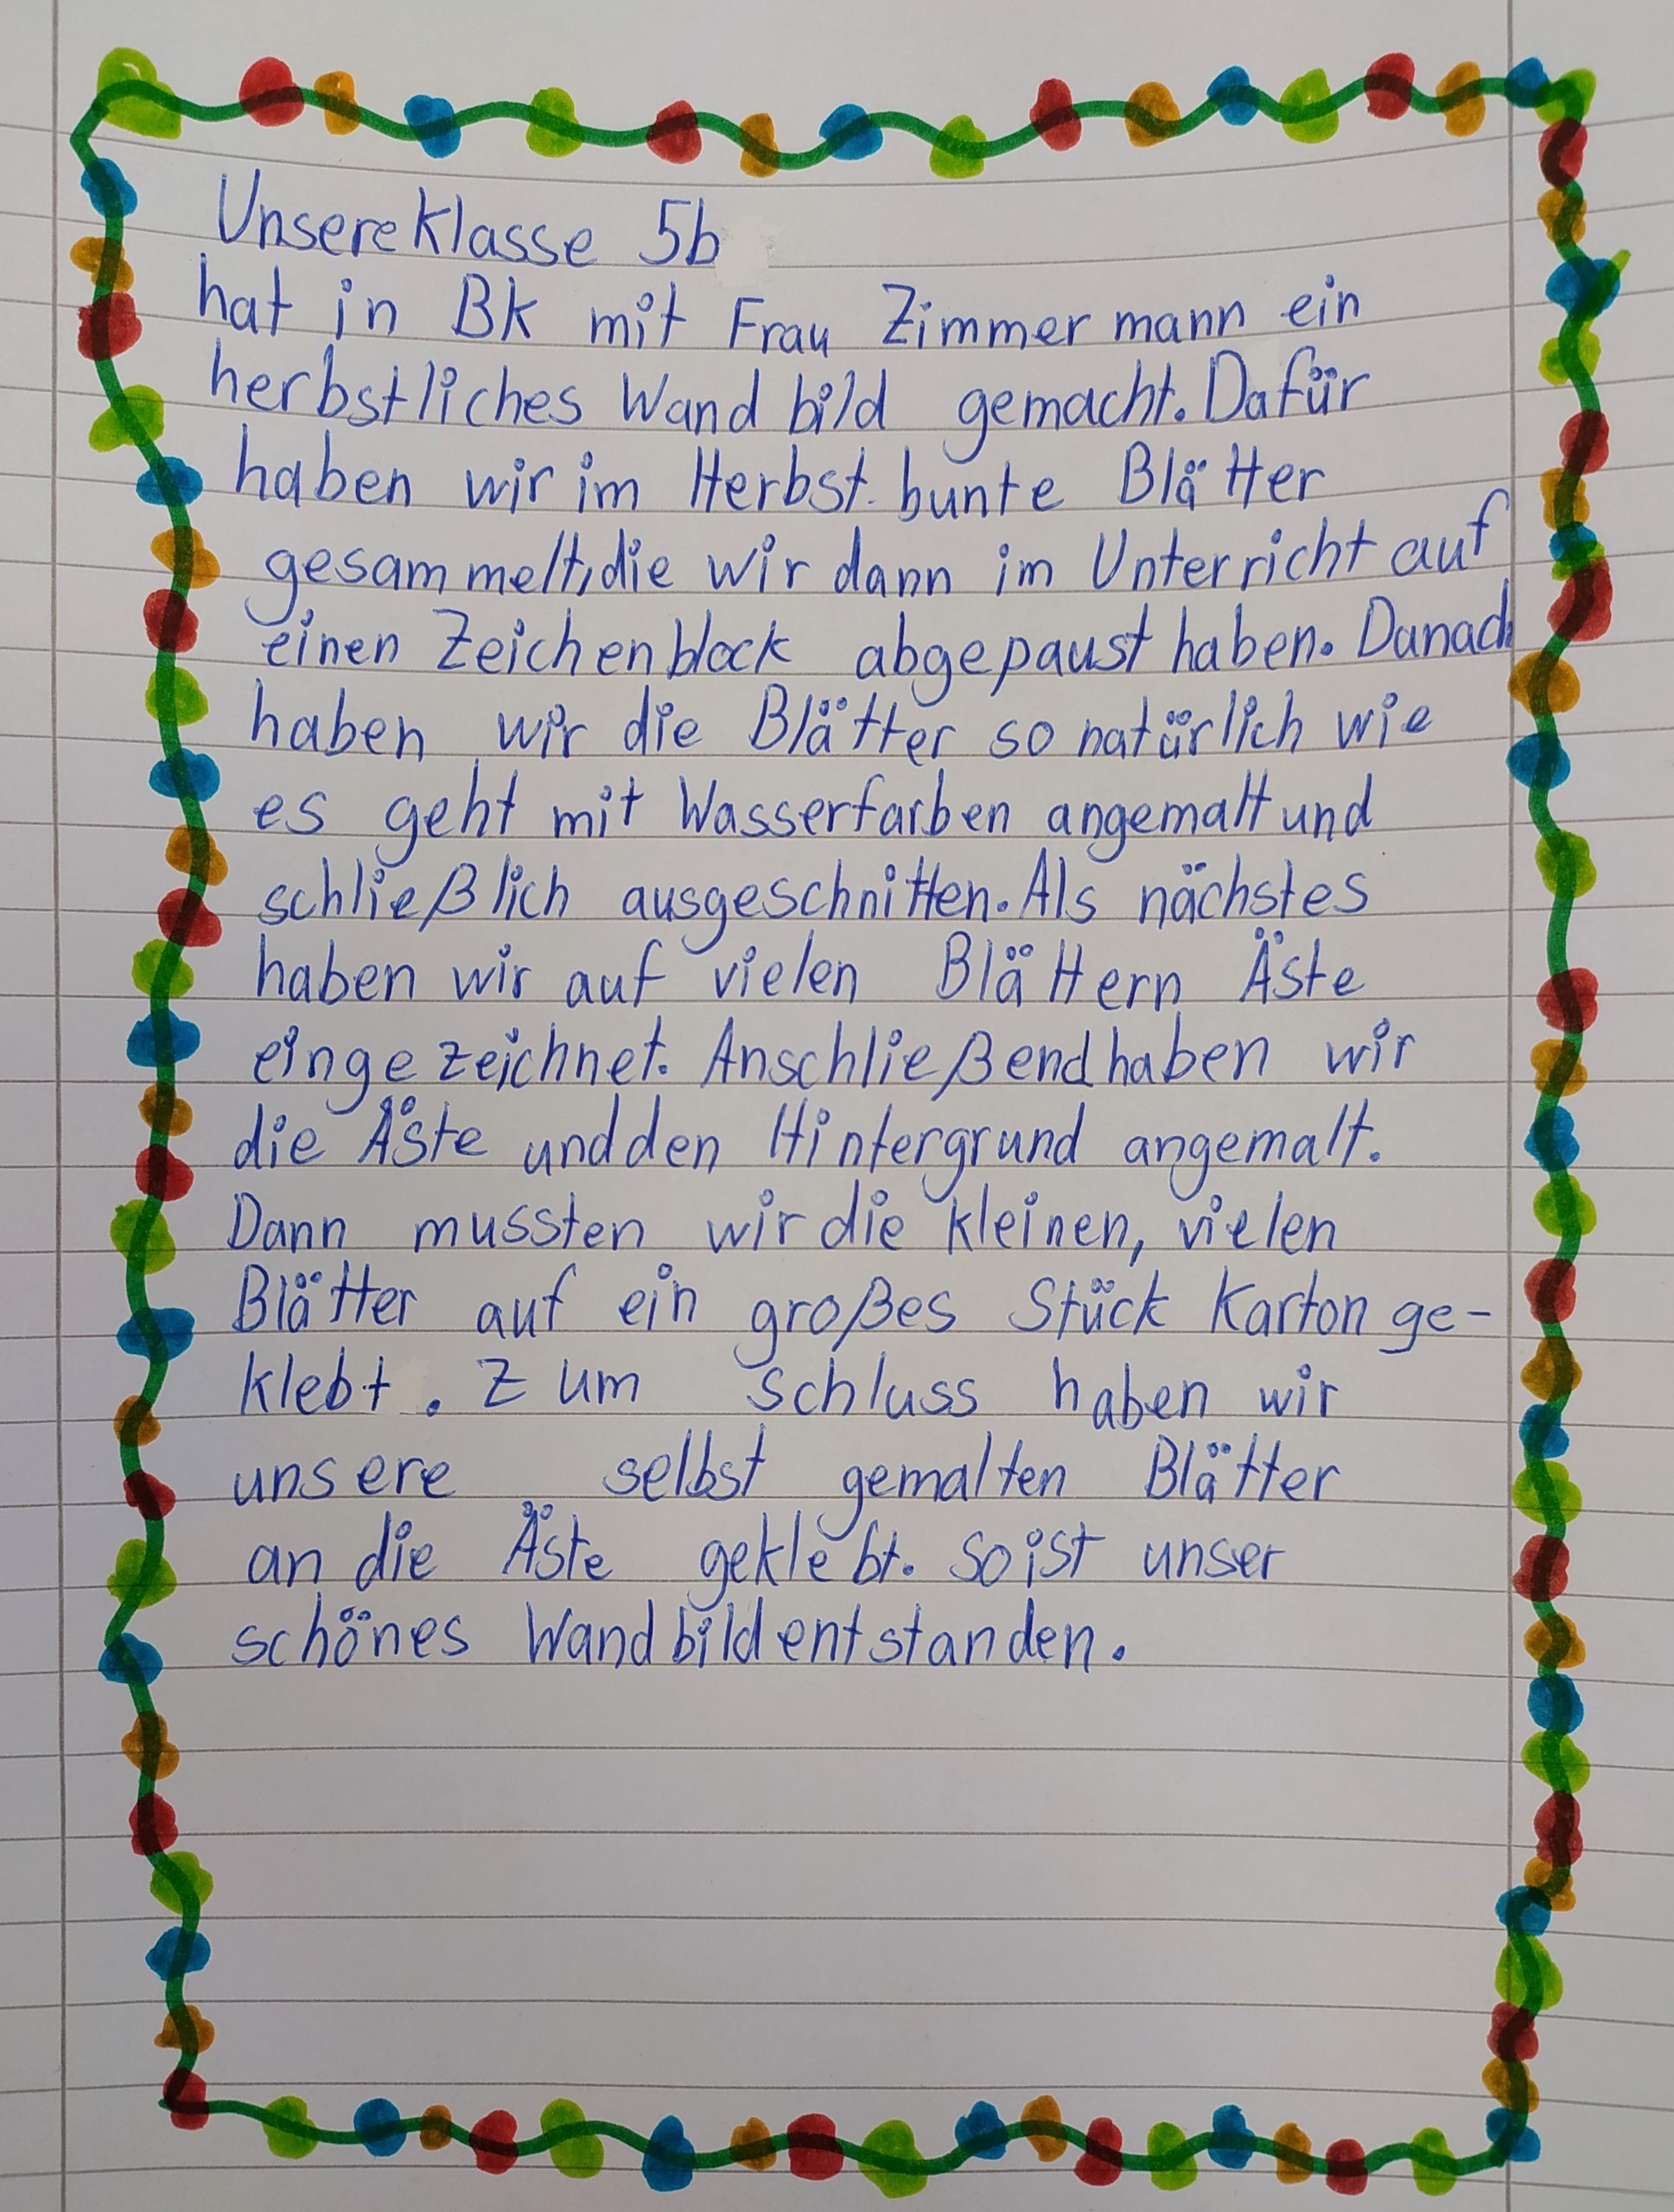 Unsere Klasse 5b
hat in BK mit Frau Zimmermann ein
herbstliches Wandbild gemacht. Dafür
haben wir im Herbst bunte Blätter
gesammelt, die wir dann im Unterricht auf
einen Zeichenblock abgepaust haben. Danach
haben wir die Blätter so natürlich wie
es geht mit Wasserfarben angemalt und
schließlich ausgeschnitten. Als nächstes
haben wir auf vielen Blättern Äste
eingezeichnet. Anschließend haben wir
die Äste und den Hintergrund angemalt.
Dann mussten wir die kleinen, vielen
Blätter auf ein großes Stück Karton ge-
klebt. Zum Schluss haben wir
unsere selbst gemalten Blätter
an die Äste geklebt. So ist unser
schönes Wandbild entstanden.